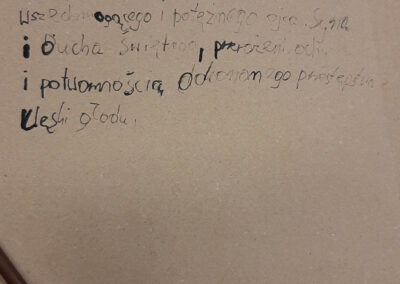 wszechmogącego i potężnego ojca Syna
i Ducha Świętego, przerażeni
i potwornością dokonanego przestępstwa
klęski głodu.